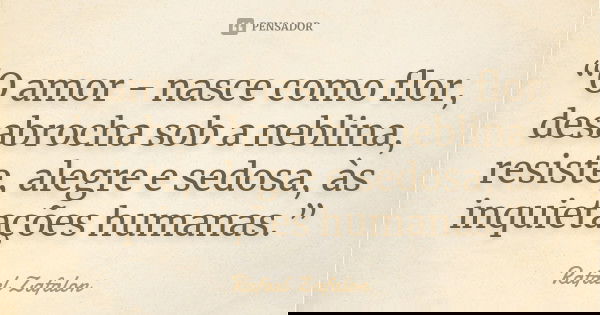 PENSADOR
“O amor – nasce como flor,
desabrocha sob a neblina,
resiste, alegre e sedosa, às
inquietações humanas.”
Rafael Zafalon